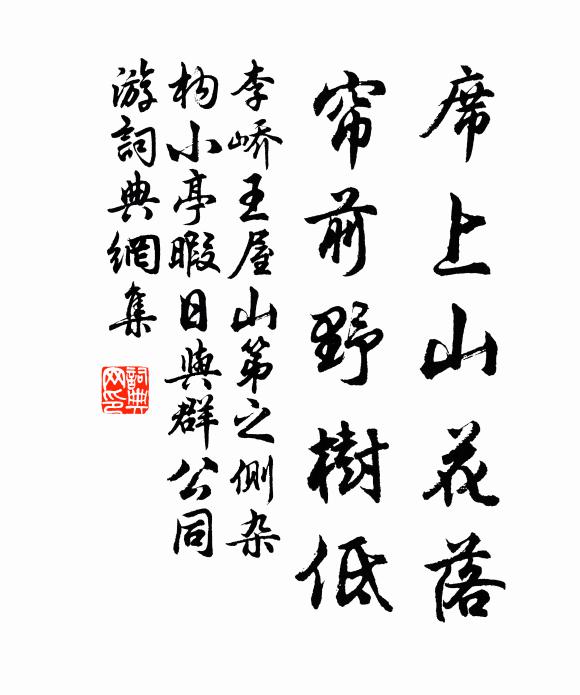 席上山花落
帘前野樹低
李嶠王屋山第之側杂
构小亭暇日與群公同
游詞典網集
詞典
网印